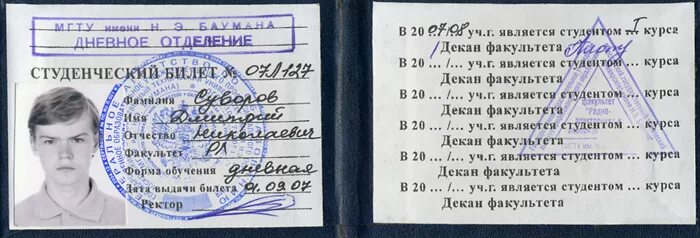 МГТУ имени Н. Э. БАУМАНА
ДНЕВНОЕ ОТДЕЛЕНИЕ
СТУДЕНЧЕСКИЙ БИЛЕТ № 07Л127
Фамилия Суворов
Имя Дмитрий
Отчество Николаевич
Факультет РЛ
Форма обучения дневная
Дата выдачи билета 01.09.07
Ректор
В 2007/08 уч.г. является студентом I курса
Декан факультета
В 20 .../... уч.г. является студентом ... курса
Декан факультета
В 20 .../... уч.г. является студентом ... курса
Декан факультета
В 20 .../... уч.г. является студентом ... курса
Декан факультета
В 20 .../... уч.г. является студентом ... курса
Декан факультета
В 20 .../... уч.г. является студентом ... курса
Декан факультета
факультет